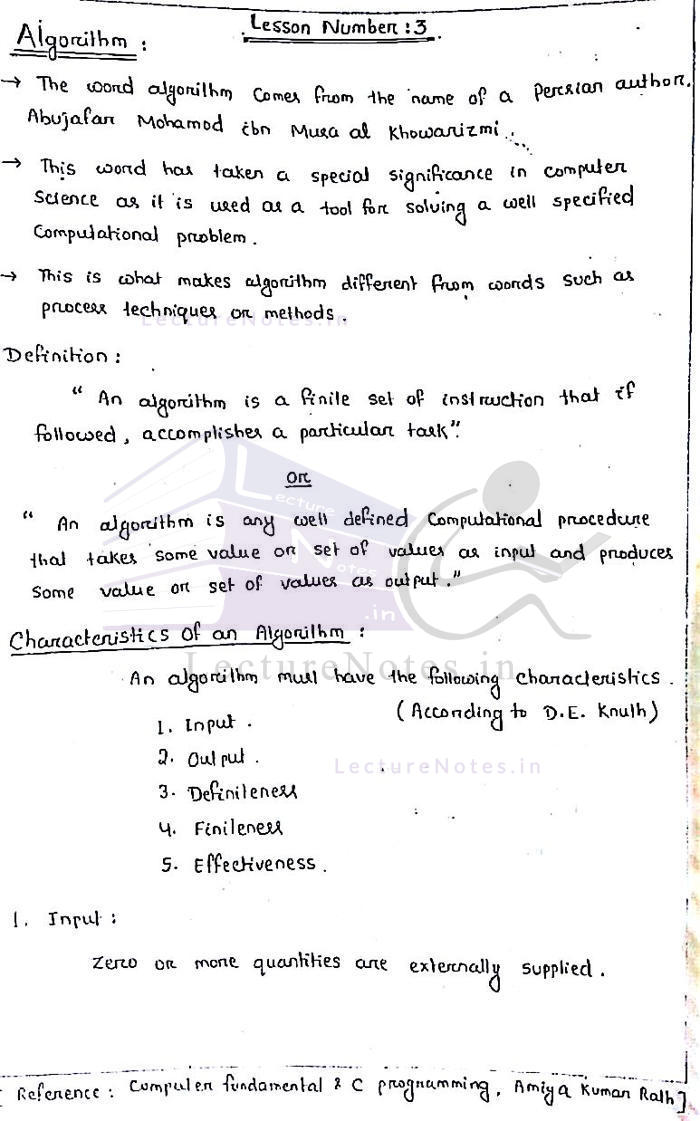 Lesson Number : 3
Algorithm :
→ The word algorithm comes from the name of a Persian author,
Abujafar Mohamod ibn Musa al Khowarizmi.
→ This word has taken a special significance in computer
Science as it is used as a tool for solving a well specified
Computational problem.
→ This is what makes algorithm different from words such as
process techniques or methods.
LectureNotes.in
Definition :
" An algorithm is a finite set of instruction that if
followed, accomplishes a particular task".
OR
" An algorithm is any well defined Computational procedure
that takes some value or set of values as input and produces
Some value or set of values as output."
Lecture
Notes
.in
Characteristics of an Algorithm :
LectureNotes.in
An algorithm must have the following characteristics.
(According to D.E. Knuth)
1. Input.
2. Output.
LectureNotes.in
3. Definiteness
4. Finiteness
5. Effectiveness.
1. Input :
Zero or more quantities are externally supplied.
[Reference : Computer fundamental & C programming, Amiya Kumar Rath]